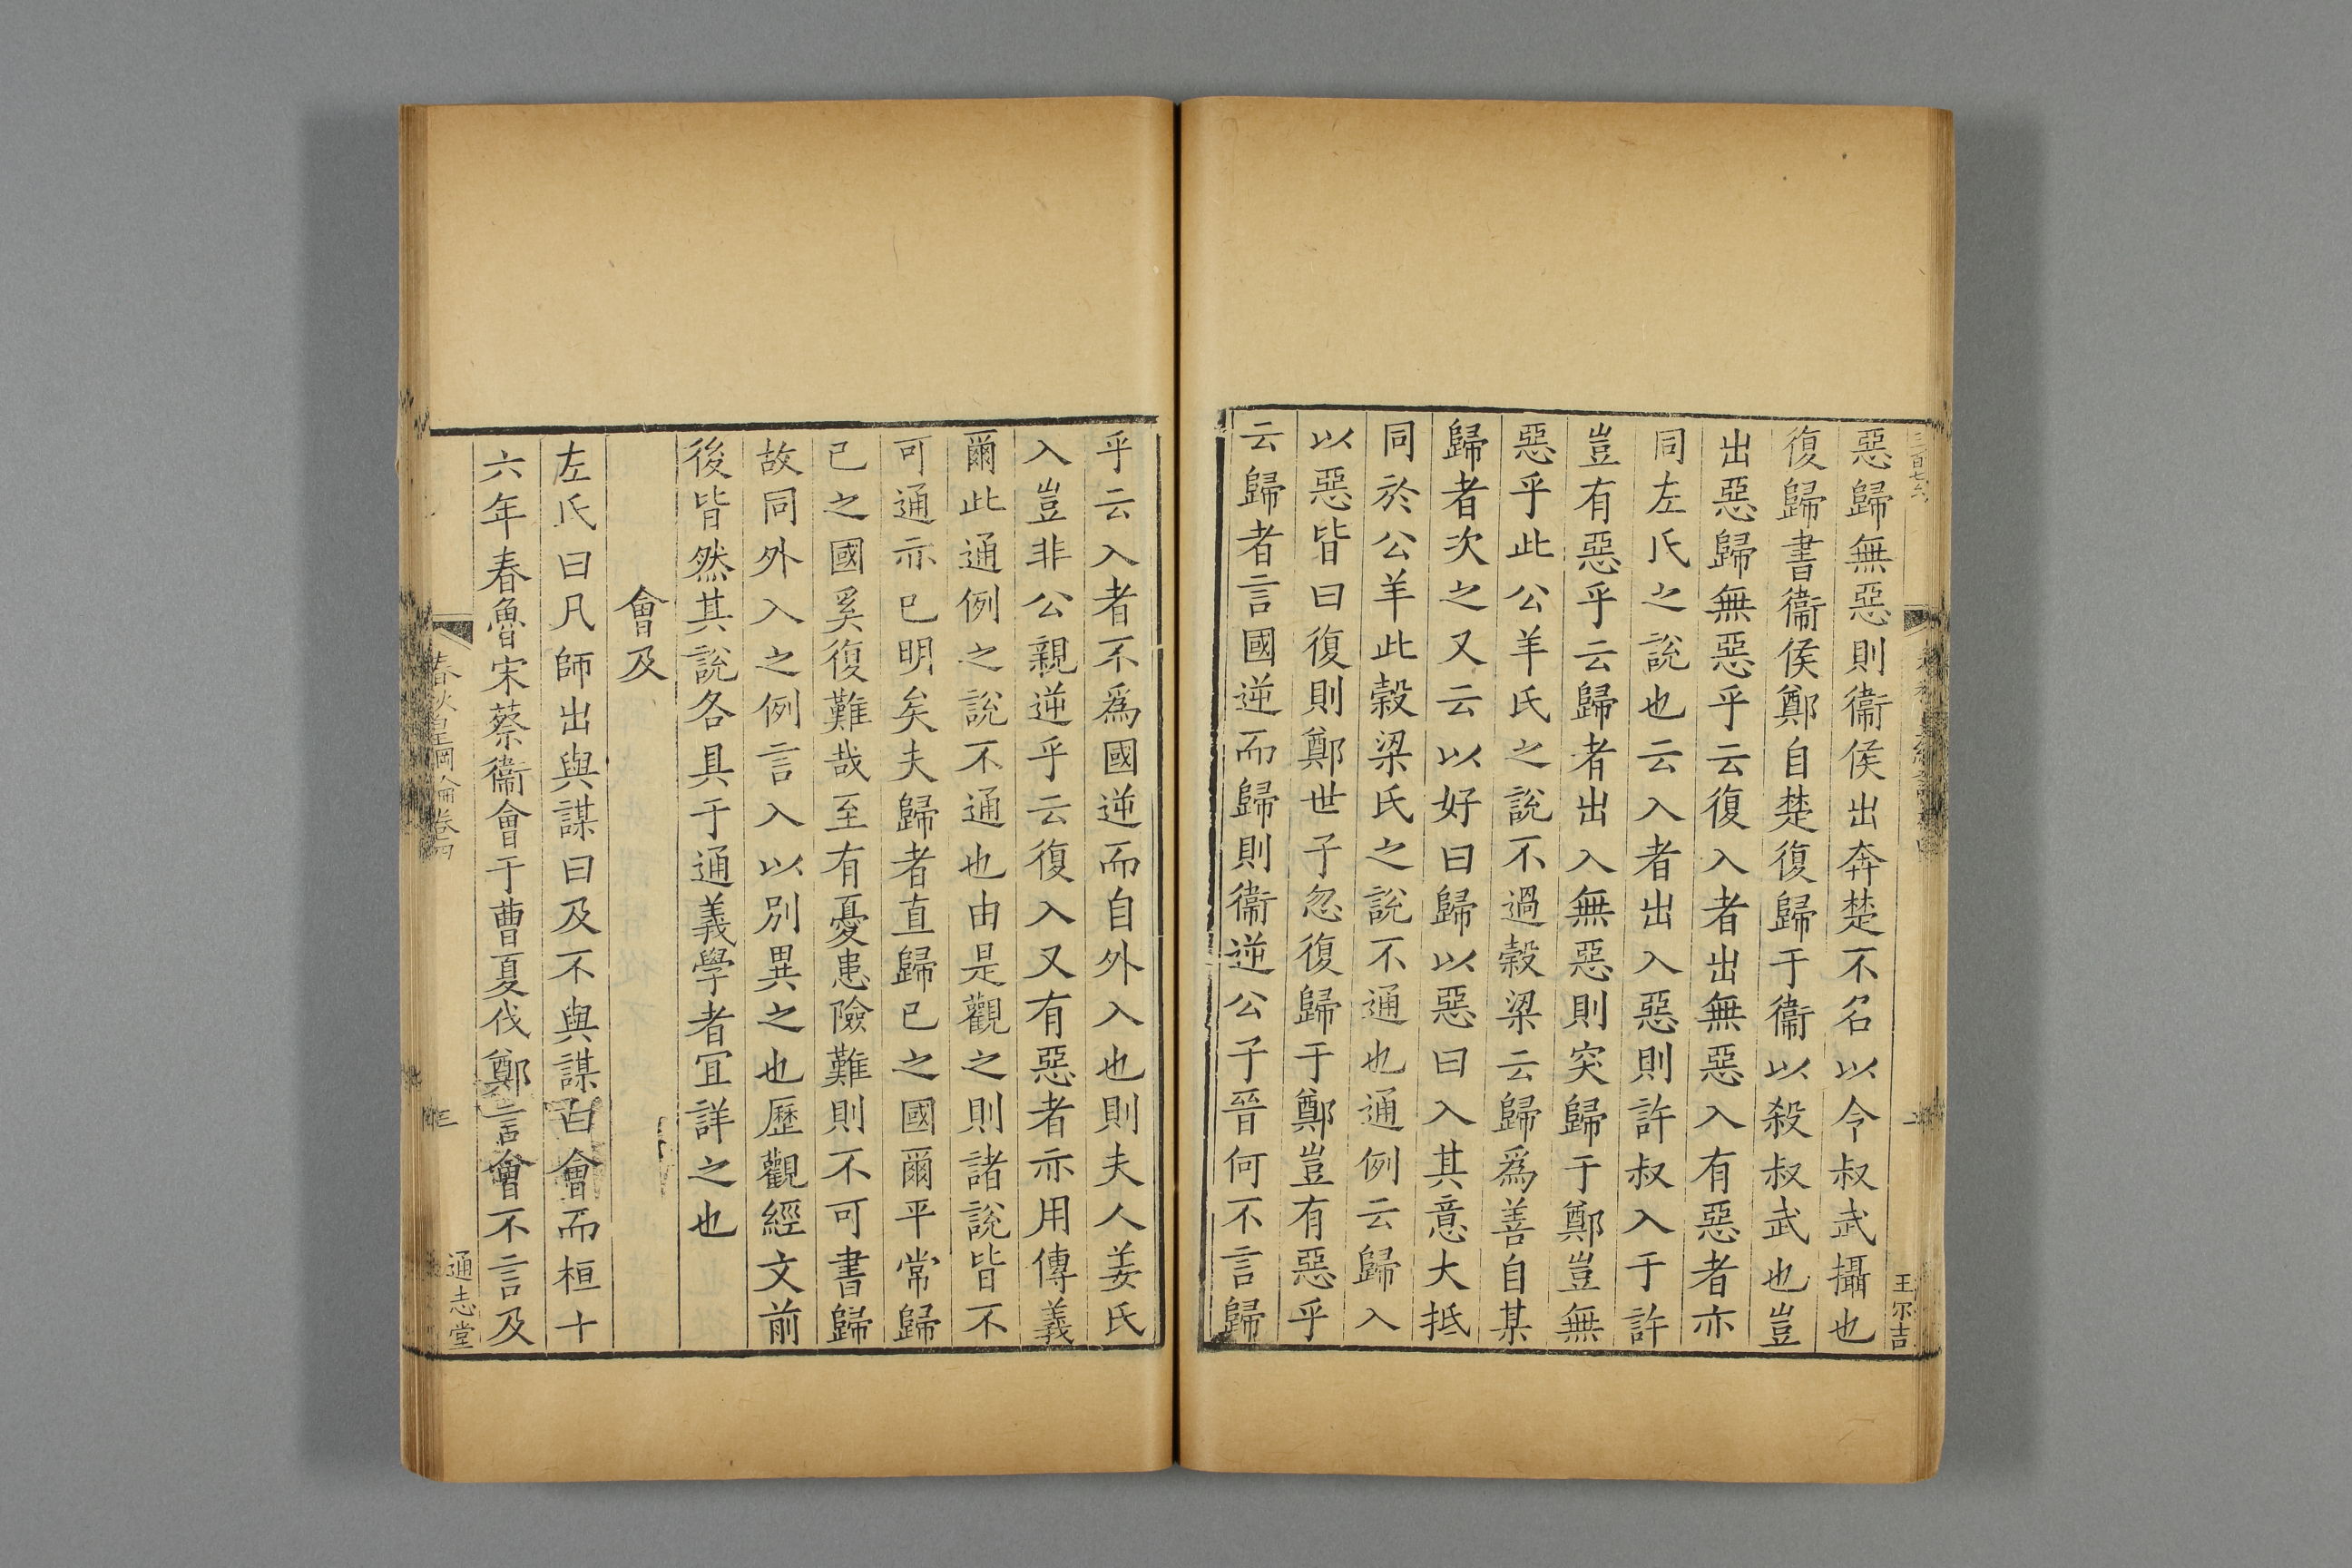 三百七六
王尔吉
惡歸無惡則衞侯出奔楚不名以令叔武攝也
復歸書衞侯鄭自楚復歸于衞以殺叔武也豈
出惡歸無惡乎云復入者出無惡入有惡者亦
同左氏之說也云入者出入惡則許叔入于許
豈有惡乎云歸者出入無惡則突歸于鄭豈無
惡乎此公羊氏之說不過糓梁云歸爲善自某
歸者次之又云以好曰歸以惡曰入其意大抵
同於公羊此糓梁氏之說不通也通例云歸入
以惡皆曰復則鄭世子忽復歸于鄭豈有惡乎
云歸者言國逆而歸則衞逆公子晉何不言歸
乎云入者不爲國逆而自外入也則夫人姜氏
入豈非公親逆乎云復入又有惡者亦用傳義
爾此通例之說不通也由是觀之則諸說皆不
可通亦已明矣夫歸者直歸已之國爾平常歸
已之國奚復難哉至有憂患險難則不可書歸
故同外入之例言入以別異之也歷觀經文前
後皆然其說各具于通義學者宜詳之也
會及
左氏曰凡師出與謀曰及不與謀曰會而桓十
六年春魯宋蔡衞會于曹夏伐鄭言會不言及
春秋皇綱論卷四
三
通志堂